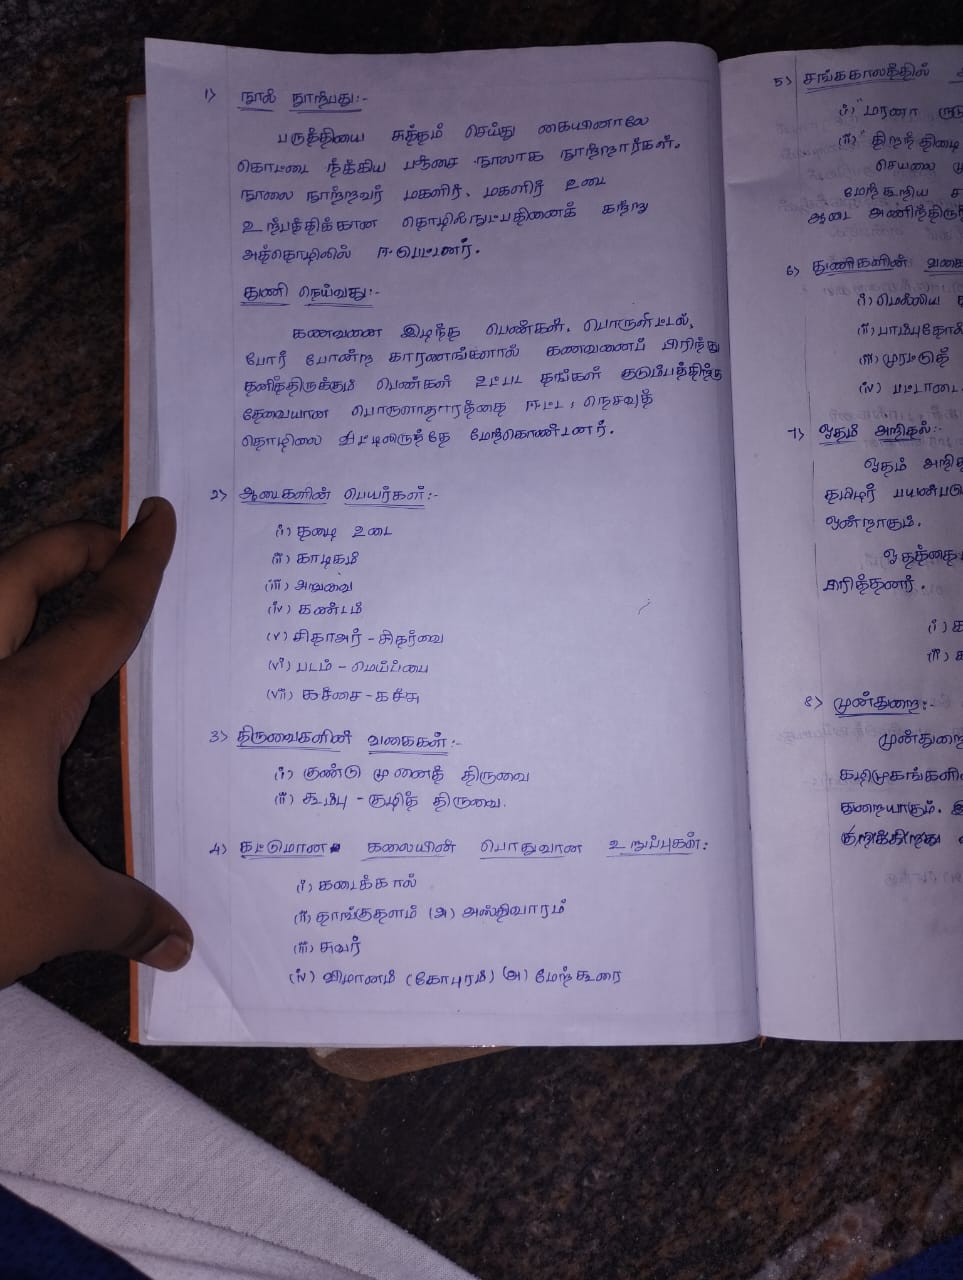 1) நூல் நூற்பது:-
பருத்தியை சுத்தம் செய்து கையினாலே
கொட்டை நீக்கிய பஞ்சை நூலாக நூற்றார்கள்.
நூலை நூற்றவர் மகளிர். மகளிர் உடை
உற்பத்திக்கான தொழில்நுட்பதினைக் கற்று
அத்தொழிலில் ஈடுபட்டனர்.
துணி நெய்வது:-
கணவனை இழந்த பெண்கள், பொருளீட்டல்,
போர் போன்ற காரணங்களால் கணவனைப் பிரிந்து
தனித்திருக்கும் பெண்கள் உட்பட தங்கள் குடும்பத்திற்கு
தேவையான பொருளாதாரத்தை ஈட்ட, நெசவுத்
தொழிலை வீட்டிலிருந்தே மேற்கொண்டனர்.
2) ஆடைகளின் பெயர்கள்:-
(i) தழை உடை
(ii) காழகம்
(iii) அறுவை
(iv) கண்டம்
(v) சிதாஅர் - சிதர்வை
(vi) படம் - மெய்ப்பை
(vii) கச்சை - கச்சு
3) திருவைகளின் வகைகள்:-
(i) குண்டு முனைத் திருவை
(ii) கூம்பு - குழித் திருவை.
4) கட்டுமான கலையின் பொதுவான உறுப்புகள்:
(i) கடைக்கால்
(ii) தாங்குதளம் (அ) அஸ்திவாரம்
(iii) சுவர்
(iv) விமானம் (கோபுரம்) (அ) மேற்கூரை
5) சங்ககாலத்தில்
(i) "மரனா
(ii) "
செயலை
மேற்கூறிய
ஆடை
6) துணிகளின் வகை
(i) மெல்லிய
(ii)
(iii) முரட்டுத்
(iv) பட்டாடை
7) ஓதம் அறிதல்:-
ஓதம்
தமிழர்
ஒன்றாகும்.
ஓதத்தை
பிரித்தனர்.
(i)
(ii)
8) முன்துறை:-
முன்துறை
கழிமுகங்களி
துறையாகும்.
குறிக்கிறது